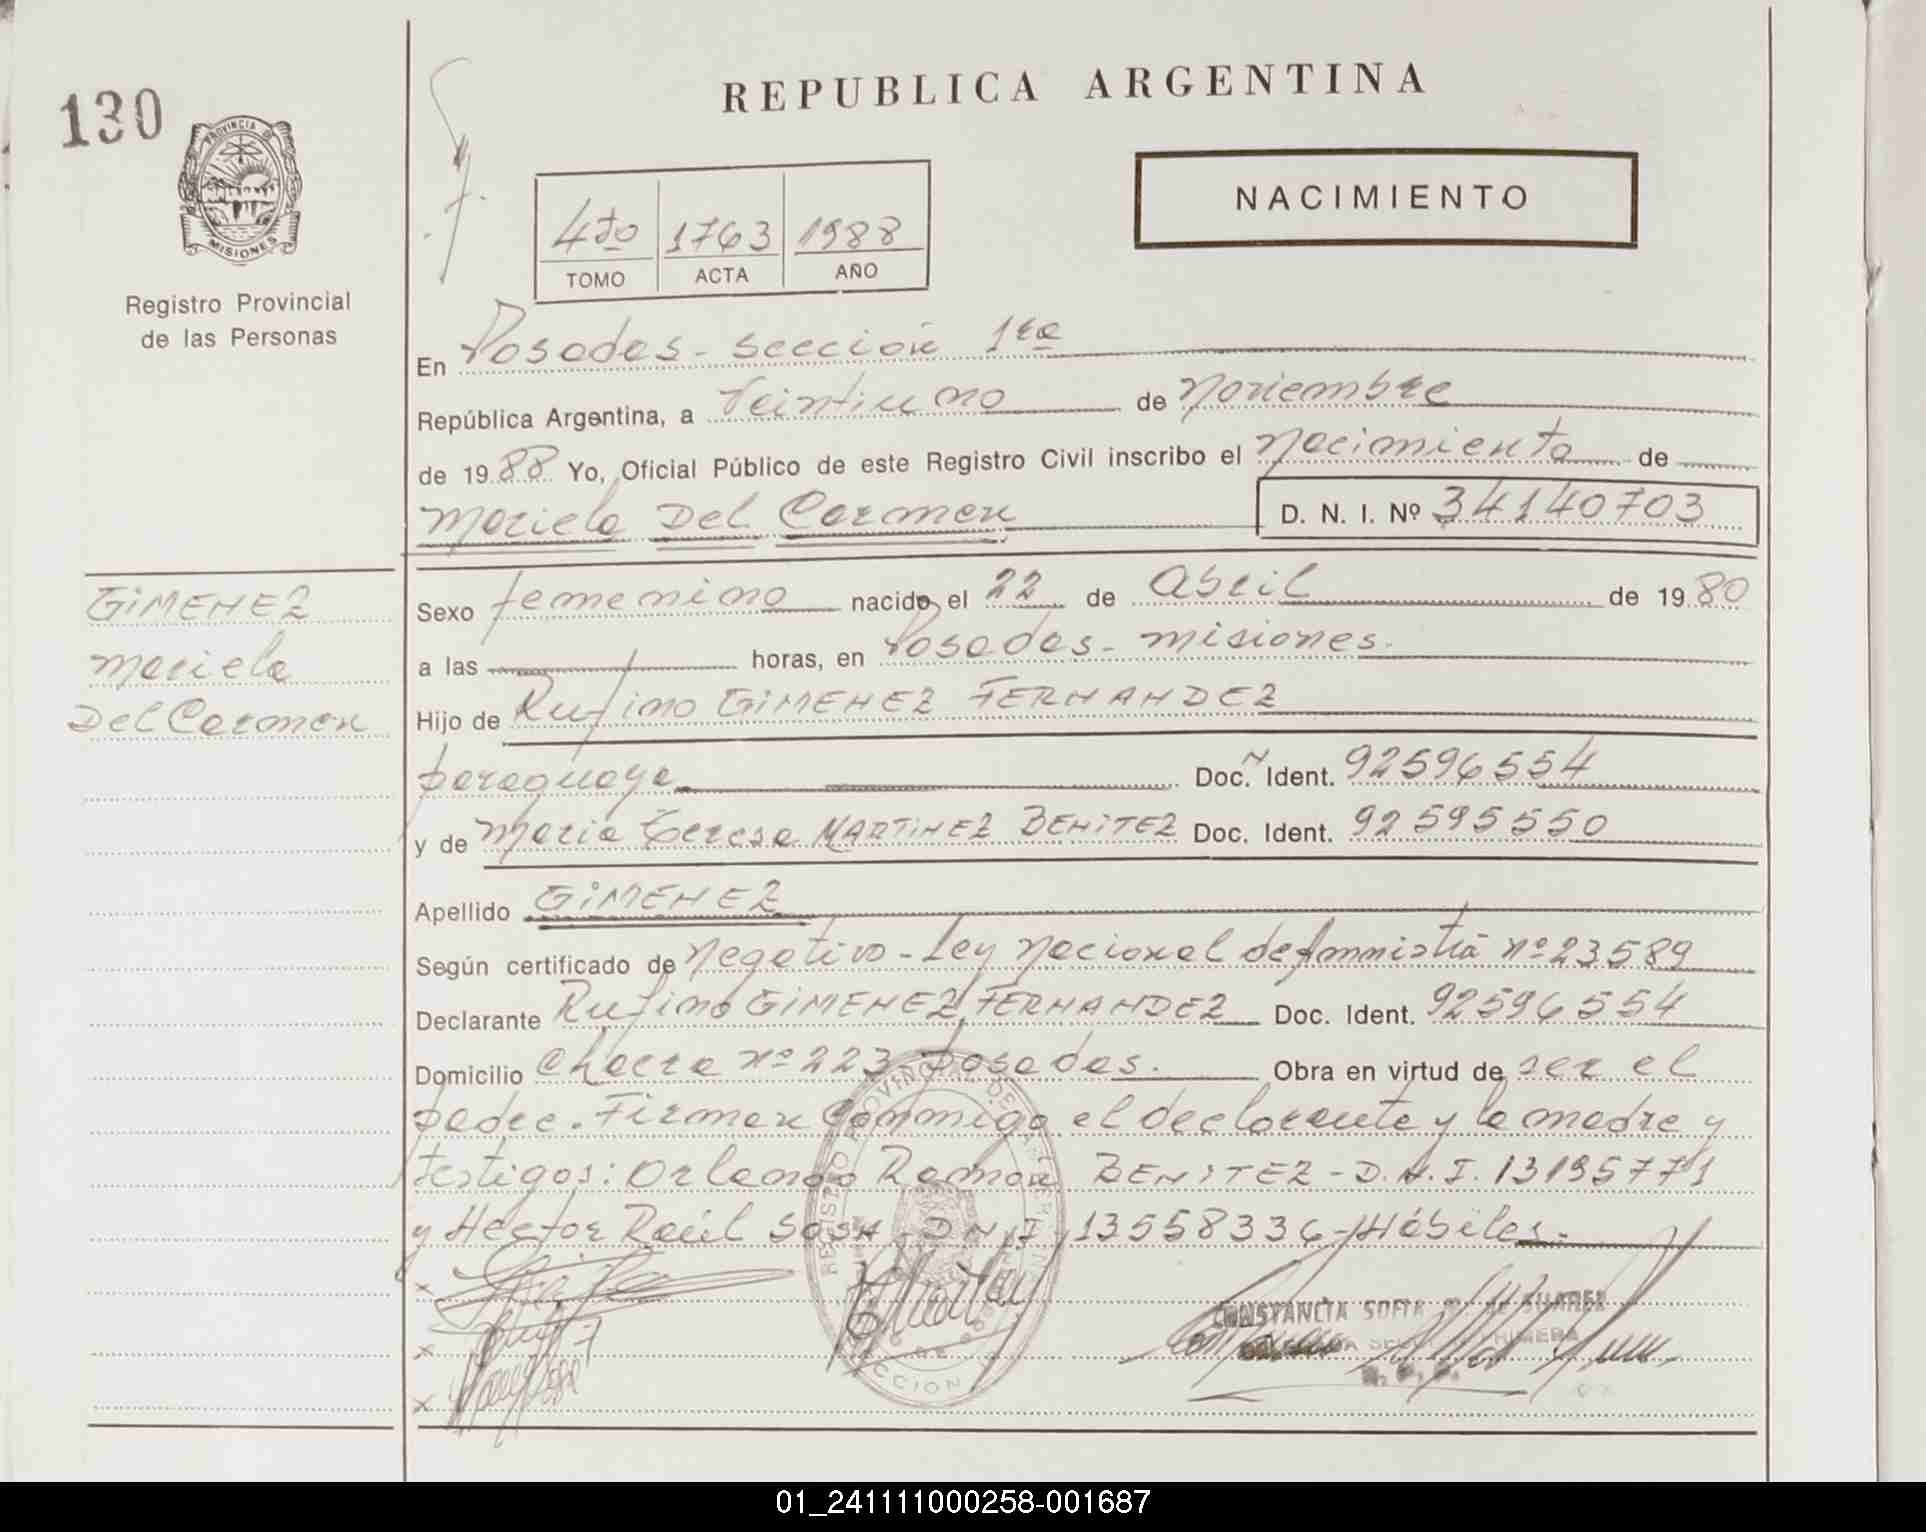 130
PROVINCIA DE
MISIONES
Registro Provincial
de las Personas
REPUBLICA ARGENTINA
NACIMIENTO
4to 1763 1988
TOMO ACTA AÑO
En Posadas - Sección 1ra
República Argentina, a Veintiuno de Noviembre
de 1988 Yo, Oficial Público de este Registro Civil inscribo el Nacimiento de
Mariela Del Carmen D. N. I. Nº 34140703
GIMENEZ
Mariela
Del Carmen
Sexo femenino nacido el 22 de Abril de 1980
a las horas, en Posadas - Misiones.
Hijo de Rufino GIMENEZ FERNANDEZ
paraguaya Doc. Ident. 92596554
y de Maria Teresa MARTINEZ BENITEZ Doc. Ident. 92595550
Apellido GIMENEZ
Según certificado de Negativo - Ley Nacional de Amnistía nº 23589
Declarante Rufino GIMENEZ FERNANDEZ Doc. Ident. 92596554
Domicilio Chacra nº 223 Posadas. Obra en virtud de ser el
padre. Firman conmigo el declarante y la madre y
testigos: Orlando Ramón BENITEZ - D.N.I. 13195771
y Hector Raúl SOSA - D.N.I. 13558336 - Hábiles.
CONSTANCIA SOFIA DE SUAREZ
PRIMERA
01_241111000258-001687